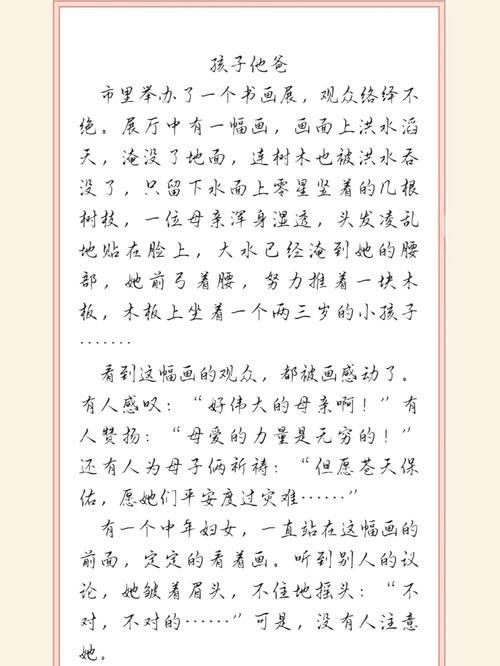 孩子他爸
市里举办了一个书画展，观众络绎不
绝。展厅中有一幅画，画面上洪水滔
天，淹没了地面，连树木也被洪水吞
没了，只留下水面上零星竖着的几根
树枝，一位母亲浑身湿透，头发凌乱
地贴在脸上，大水已经淹到她的腰
部，她前弓着腰，努力推着一块木
板，木板上坐着一个两三岁的小孩子
·······
看到这幅画的观众，都被画感动了。
有人感叹：“好伟大的母亲啊！”有
人赞扬：“母爱的力量是无穷的！”
还有人为母子俩祈祷：“但愿苍天保
佑，愿她们平安度过灾难······”
有一个中年妇女，一直站在这幅画的
前面，定定的看着画。听到别人的议
论，她皱着眉头，不住地摇头：“不
对，不对的······”可是，没有人注意
她。